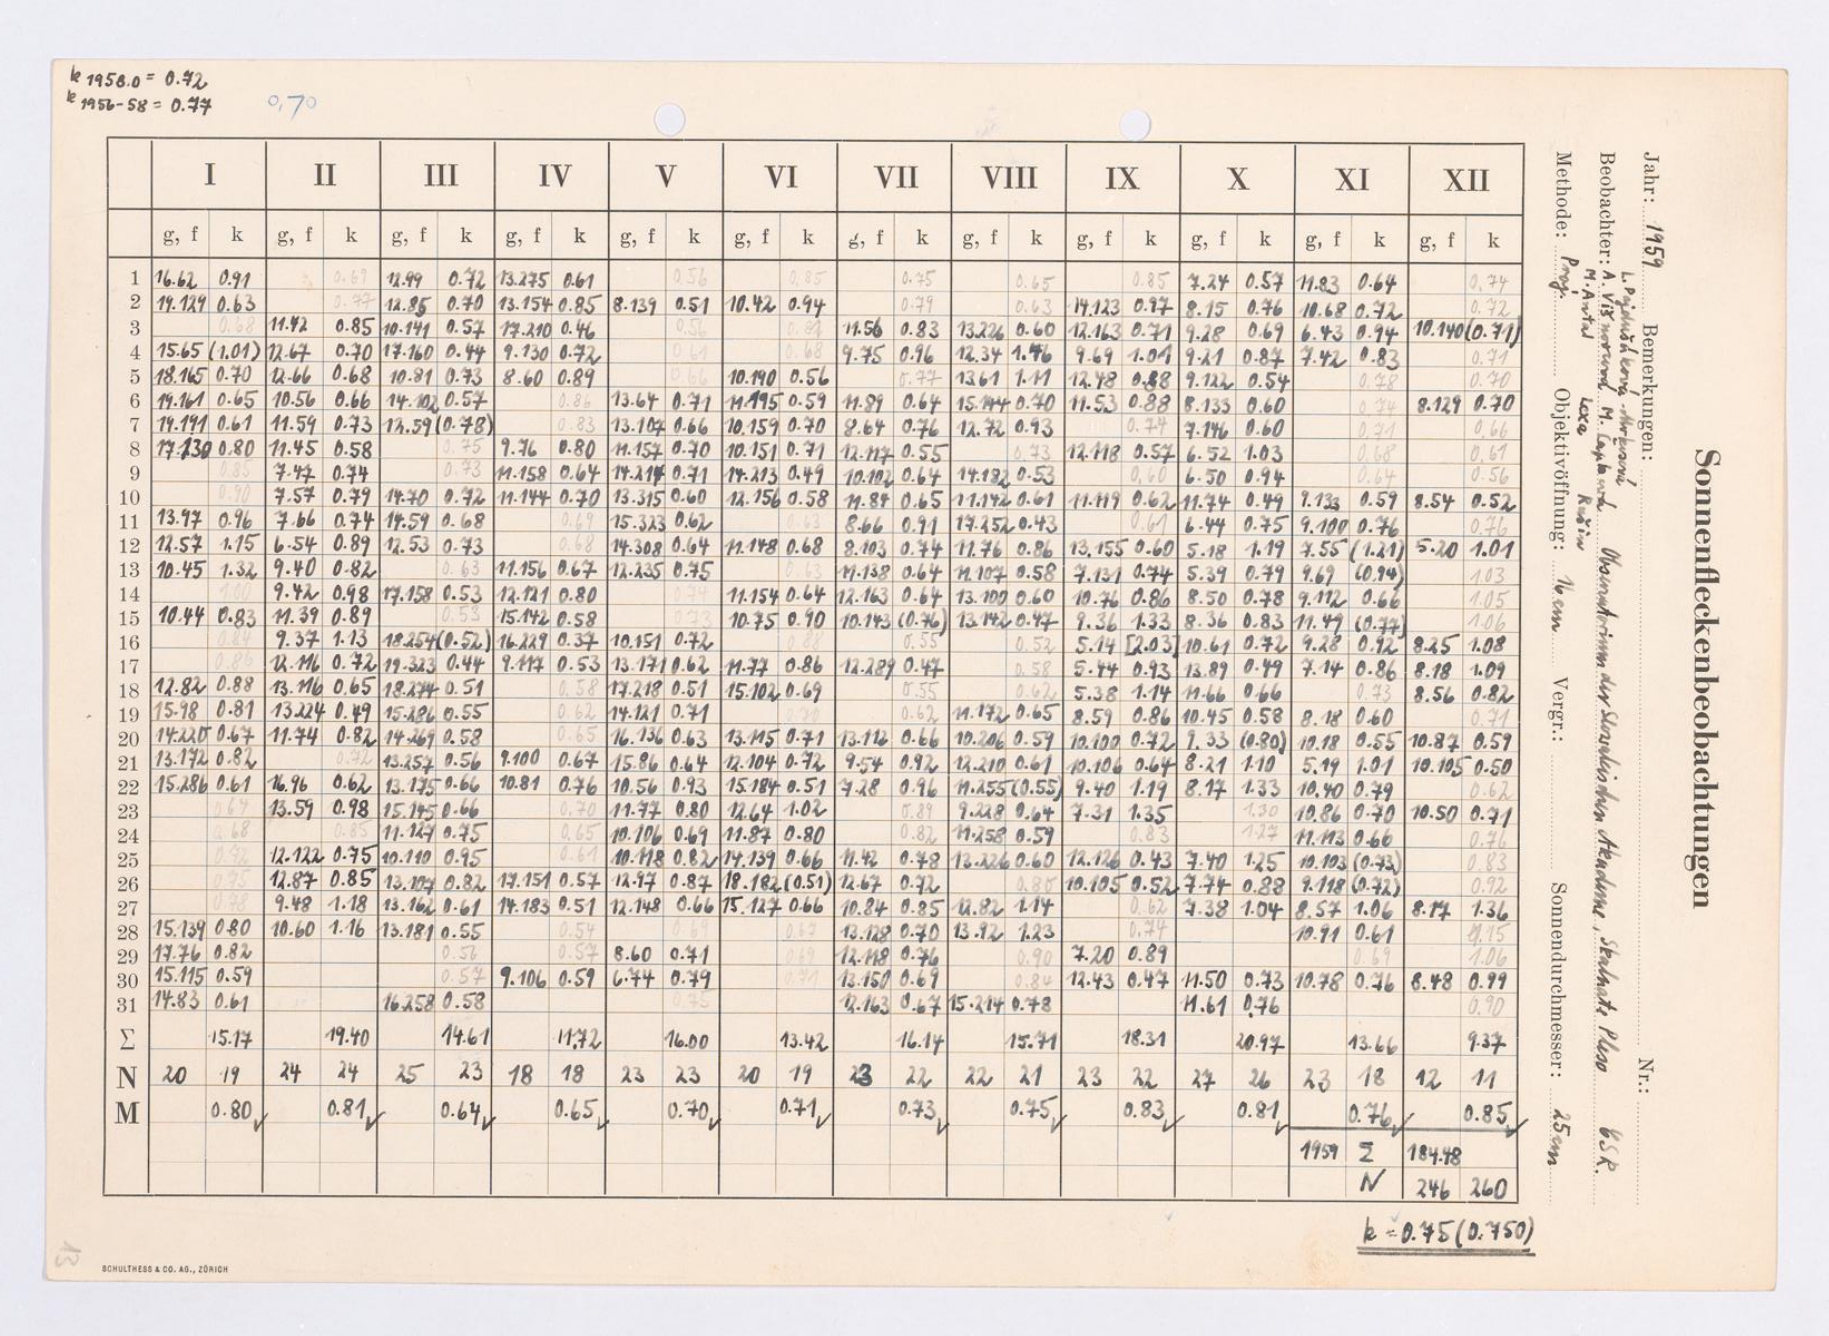 k 1958.0 = 0.72
k 1956-58 = 0.77 0,70
I II III IV V VI VII VIII IX X XI XII
g, f k g, f k g, f k g, f k g, f k g, f k g, f k g, f k g, f k g, f k g, f k g, f k
1 16.62 0.91 0.69 12.99 0.72 13.275 0.61 0.56 0.85 0.75 0.65 0.85 7.24 0.57 11.83 0.64 0.74
2 14.129 0.63 0.77 12.85 0.70 13.154 0.85 8.139 0.51 10.42 0.94 0.79 0.63 14.123 0.97 8.15 0.76 10.68 0.72 0.72
3 0.68 11.42 0.85 10.141 0.57 17.210 0.46 0.56 11.56 0.83 13.226 0.60 12.163 0.71 9.28 0.69 6.43 0.94 10.140 (0.71)
4 15.65 (1.01) 12.67 0.70 17.160 0.44 9.130 0.72 0.61 0.68 9.75 0.96 12.34 1.46 9.69 1.01 9.21 0.87 7.42 0.83 0.71
5 18.165 0.70 12.66 0.68 10.81 0.73 8.60 0.89 0.66 10.190 0.56 0.77 13.61 1.11 12.48 0.88 9.122 0.54 0.78 0.70
6 19.161 0.65 10.56 0.66 14.102 0.57 0.86 13.64 0.71 11.195 0.59 11.89 0.64 15.144 0.70 11.53 0.88 8.133 0.60 0.74 8.129 0.70
7 19.191 0.61 11.59 0.73 12.59 (0.78) 0.83 13.107 0.66 10.159 0.70 8.64 0.76 12.72 0.93 0.74 7.146 0.60 0.71 0.66
8 17.130 0.80 11.45 0.58 0.75 9.76 0.80 11.157 0.70 10.151 0.71 12.117 0.55 0.73 12.118 0.57 6.52 1.03 0.68 0.61
9 0.85 7.47 0.74 0.73 11.158 0.64 14.214 0.71 14.213 0.49 10.102 0.64 14.182 0.53 0.60 6.50 0.94 0.64 0.56
10 0.90 7.57 0.79 14.70 0.72 11.144 0.70 13.315 0.60 12.156 0.58 11.84 0.65 11.142 0.61 11.119 0.62 11.74 0.49 9.133 0.59 8.54 0.52
11 13.97 0.96 7.66 0.74 14.59 0.68 0.69 15.323 0.62 0.63 8.66 0.91 17.252 0.43 0.61 6.44 0.75 9.100 0.76 0.76
12 12.57 1.15 6.54 0.89 12.53 0.73 0.68 14.308 0.64 11.148 0.68 8.103 0.74 11.76 0.86 13.155 0.60 5.18 1.19 7.55 (1.21) 5.20 1.01
13 10.45 1.32 9.40 0.82 0.63 11.156 0.67 12.235 0.75 0.63 11.138 0.64 11.107 0.58 7.131 0.74 5.39 0.79 9.69 (0.94) 1.03
14 1.00 9.42 0.98 17.158 0.53 12.121 0.80 0.74 11.154 0.64 12.163 0.64 13.100 0.60 10.76 0.86 8.50 0.78 9.112 0.66 1.05
15 10.44 0.83 11.39 0.89 0.53 15.142 0.58 0.73 10.75 0.90 10.143 (0.76) 13.142 0.47 9.36 1.33 8.36 0.83 11.49 (0.77) 1.06
16 0.84 9.37 1.13 18.254 (0.52) 16.229 0.37 10.151 0.72 0.88 0.55 0.52 5.14 [2.03] 10.61 0.72 9.28 0.92 8.25 1.08
17 0.86 12.116 0.72 19.323 0.44 9.117 0.53 13.171 0.62 11.77 0.86 12.289 0.47 0.58 5.44 0.93 13.89 0.49 7.14 0.86 8.18 1.09
18 12.82 0.88 13.116 0.65 18.274 0.51 0.58 17.218 0.51 15.102 0.69 0.55 0.62 5.38 1.14 11.66 0.66 0.73 8.56 0.82
19 15.98 0.81 13.224 0.49 15.286 0.55 0.62 14.121 0.71 0.62 11.172 0.65 8.59 0.86 10.45 0.58 8.18 0.60 0.71
20 14.220 0.67 11.74 0.82 14.269 0.58 0.65 16.136 0.63 13.115 0.71 13.112 0.66 10.206 0.59 10.100 0.72 9.33 (0.80) 10.18 0.55 10.87 0.59
21 13.172 0.82 0.72 13.257 0.56 9.100 0.67 15.86 0.64 12.104 0.72 9.54 0.92 12.210 0.61 10.106 0.64 8.21 1.10 5.19 1.01 10.105 0.50
22 15.286 0.61 16.96 0.62 13.175 0.66 10.81 0.76 10.56 0.93 15.184 0.51 7.28 0.96 11.255 (0.55) 9.40 1.19 8.17 1.33 10.40 0.79 0.62
23 0.64 13.59 0.98 15.145 0.66 0.70 11.77 0.80 12.64 1.02 0.89 9.228 0.64 7.31 1.35 1.30 10.86 0.70 10.50 0.71
24 0.68 0.85 11.127 0.75 0.65 10.106 0.69 11.87 0.80 0.82 11.258 0.59 0.83 1.27 11.113 0.66 0.76
25 0.72 12.122 0.75 10.110 0.95 0.61 10.118 0.82 14.139 0.66 11.42 0.78 13.226 0.60 12.126 0.43 7.40 1.25 10.103 (0.73) 0.83
26 0.75 12.87 0.85 13.107 0.82 17.151 0.57 12.97 0.87 18.182 (0.51) 12.67 0.72 0.80 10.105 0.52 7.74 0.88 9.118 (0.72) 0.92
27 0.78 9.48 1.18 13.162 0.61 14.183 0.51 12.148 0.66 15.127 0.66 10.84 0.85 12.82 1.14 0.62 7.38 1.04 8.57 1.06 8.17 1.36
28 15.139 0.80 10.60 1.16 13.181 0.55 0.54 0.69 0.67 13.128 0.70 13.92 1.23 0.74 10.91 0.61 1.15
29 17.76 0.82 0.56 0.57 8.60 0.71 0.69 12.118 0.76 0.90 7.20 0.89 0.69 1.06
30 15.115 0.59 0.57 9.106 0.59 6.74 0.79 0.71 13.150 0.69 0.84 12.43 0.47 11.50 0.73 10.78 0.76 8.48 0.99
31 14.83 0.61 16.258 0.58 0.75 12.163 0.67 15.214 0.78 11.61 0.76 0.90
Σ 15.17 19.40 14.61 11.72 16.00 13.42 16.14 15.71 18.31 20.97 13.66 9.37
N 20 19 24 24 25 23 18 18 23 23 20 19 23 22 22 21 23 22 27 26 23 18 12 11
M 0.80 0.81 0.64 0.65 0.70 0.71 0.73 0.75 0.83 0.81 0.76 0.85
1959 Σ 184.48
N 246 260
k = 0.75 (0.750)
Sonnenfleckenbeobachtungen
Jahr: 1959 Bemerkungen: Nr.:
Beobachter: L. Pajdušáková
A. M. Observatorium der Slowakischen Akademie, Skalnaté Pleso ČSR.
M. Antal
Methode: Proj. Objektivöffnung: 16 cm Vergr.: Sonnendurchmesser: 25 cm
13
SCHULTHESS & CO. AG., ZÜRICH